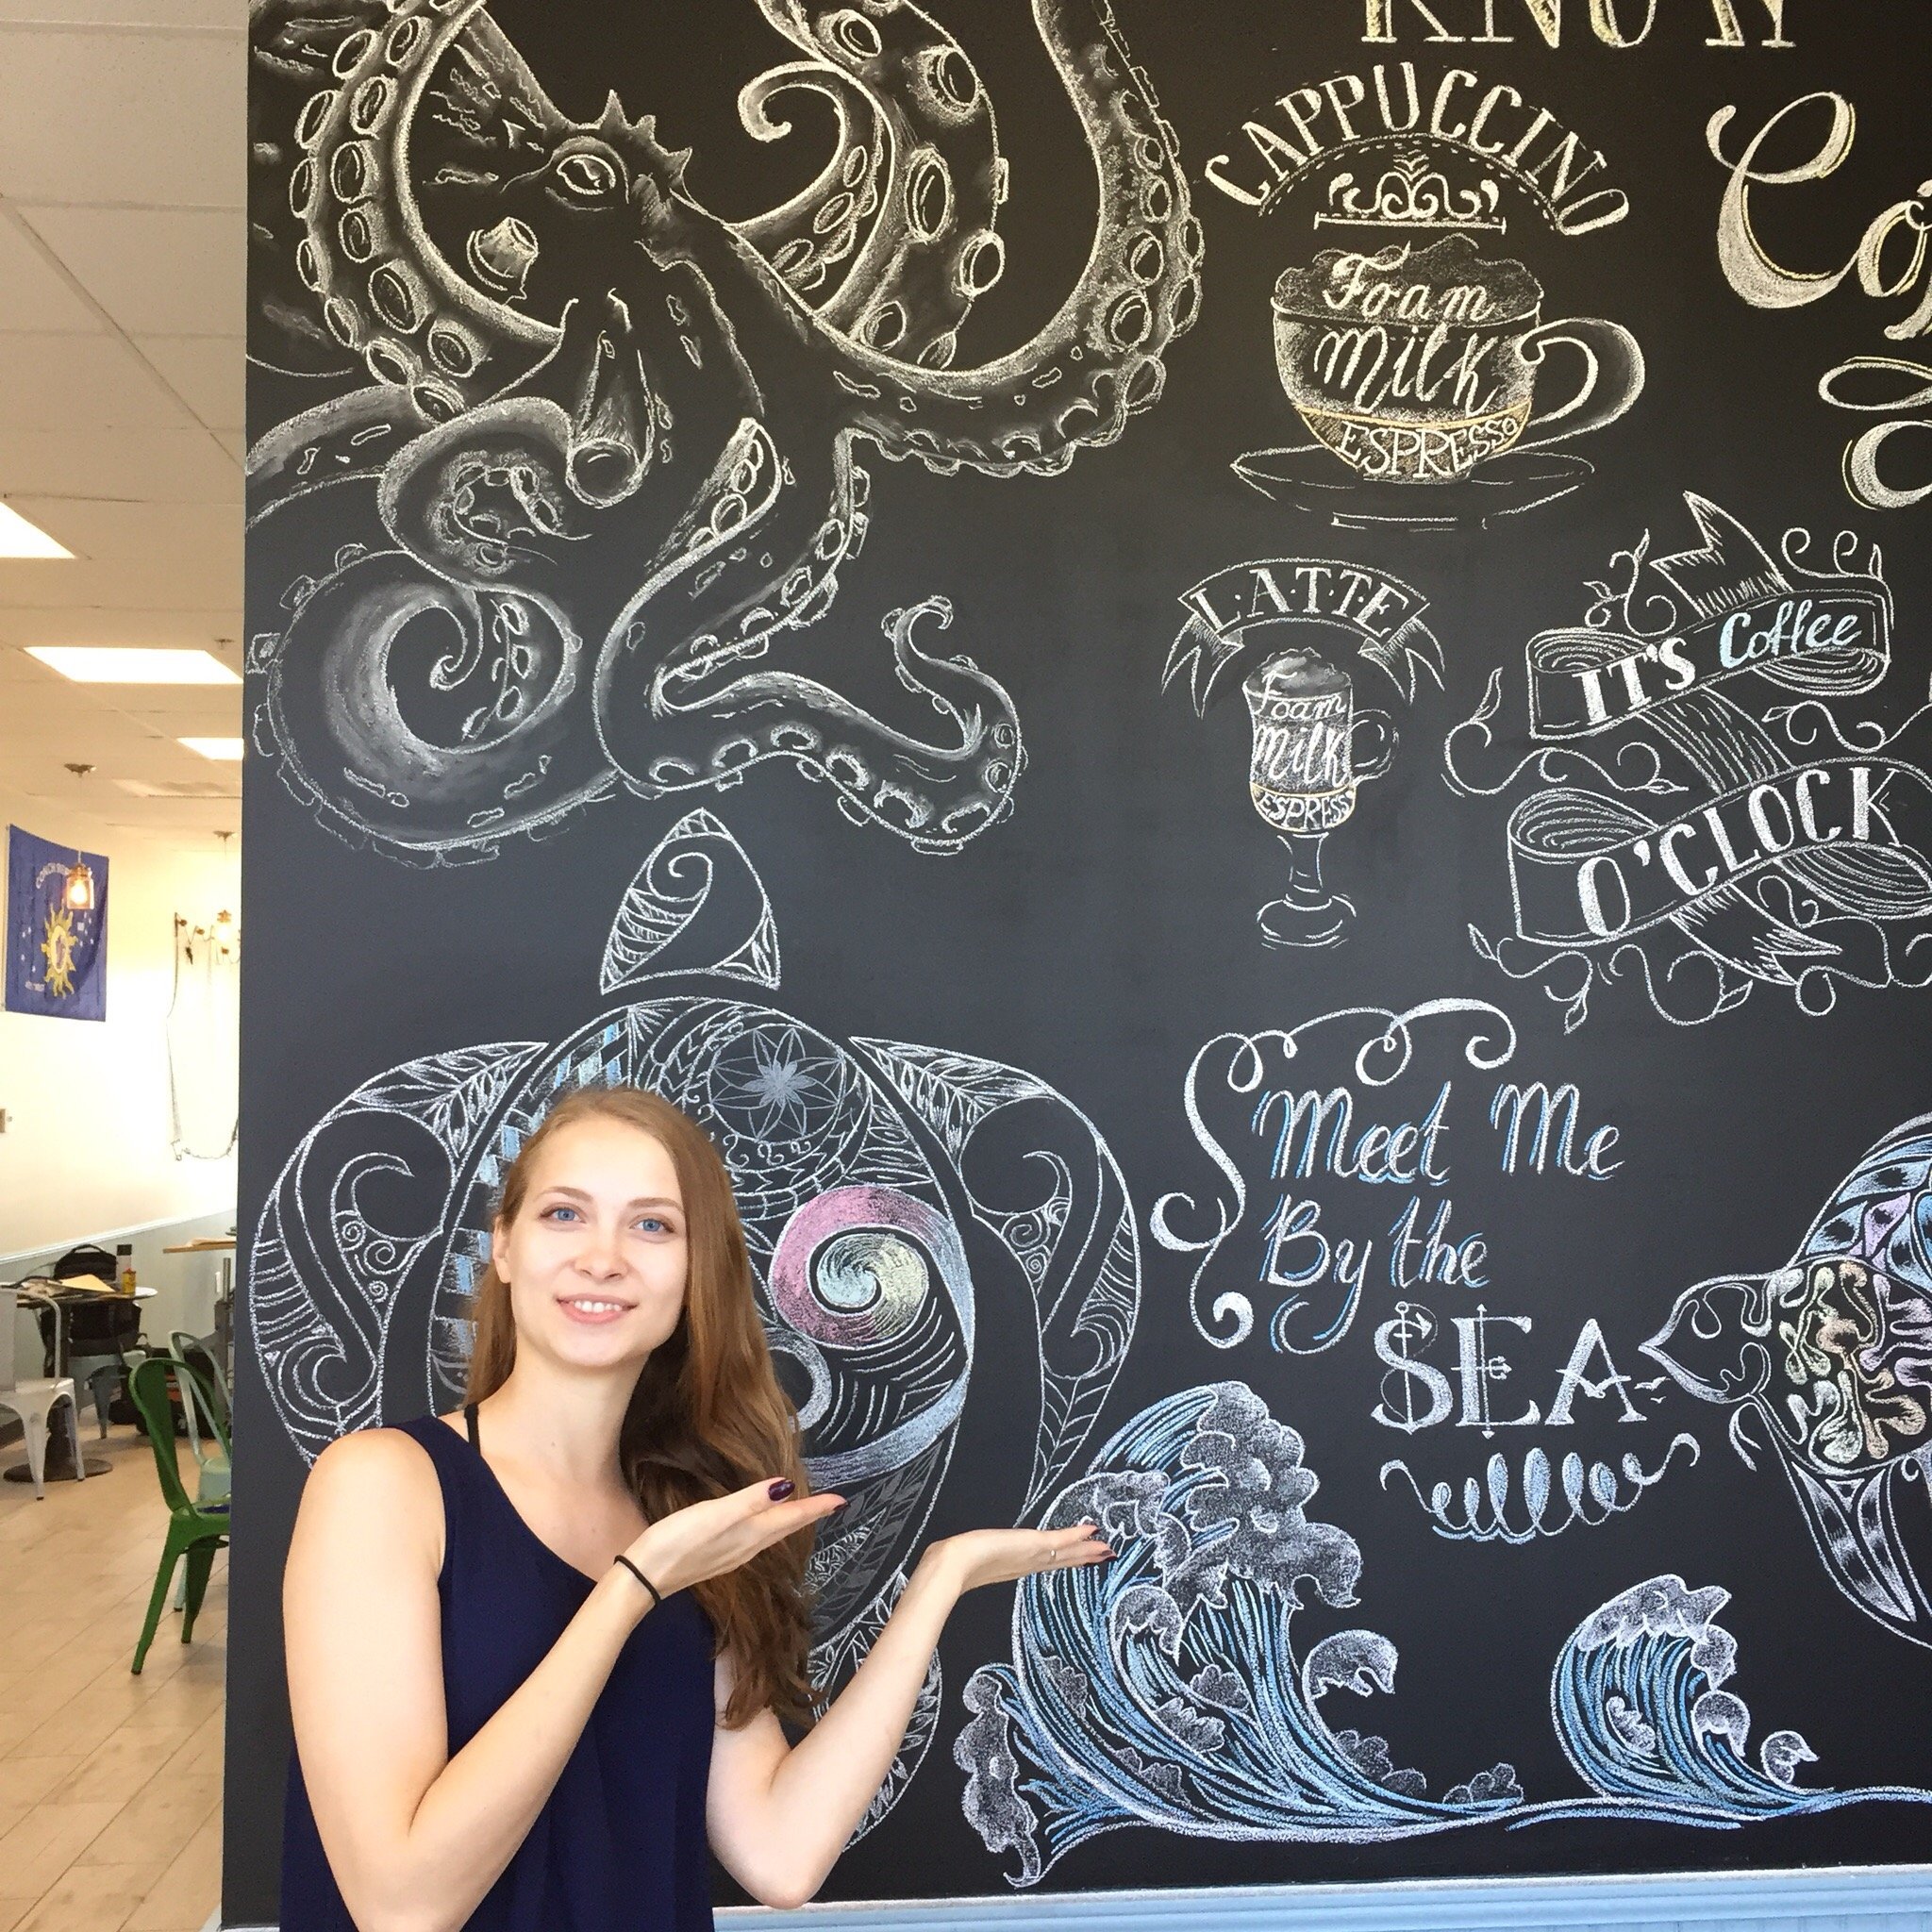 KNOW
CAPPUCCINO
Foam
Milk
ESPRESSO
LATTE
Foam
Milk
ESPRESS
IT'S Coffee
O'CLOCK
Meet Me
By the
SEA